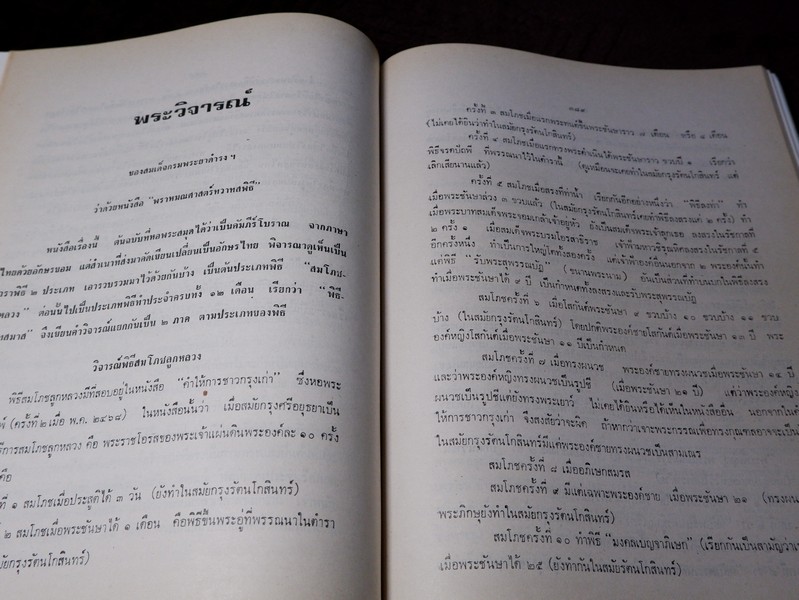 พระวิจารณ์
ของสมเด็จกรมพระยาดำรง ฯ
ว่าด้วยหนังสือ "พราหมณศาสตร์ทวาทสพิธี"
หนังสือเรื่องนี้ ต้นฉบับที่หอพระสมุดได้ว่าเป็นคัมภีร์โบราณ จากภาษา
ไทยด้วยอักษรขอม แต่สำเนาที่ส่งมาคัดเขียนเปลี่ยนเป็นอักษรไทย พิจารณาดูเห็นเป็น
ราพิธี ๒ ประเภท เอารวบรวมมาไว้ด้วยกันบ้าง เป็นต้นประเภทพิธี "สมโภช-
หลวง" ต่อนั้นไปเป็นประเภทพิธีทำประจำครบทั้ง ๑๒ เดือน เรียกว่า "พิธี-
สมาส" จึงเขียนคำวิจารณ์แยกกันเป็น ๒ ภาค ตามประเภทของพิธี
วิจารณ์พิธีสมโภชลูกหลวง
พิธีสมโภชลูกหลวงมีที่สอบอยู่ในหนังสือ "คำให้การชาวกรุงเก่า" ซึ่งหอพระ
(ครั้งที่ ๒ เมื่อ พ.ศ. ๒๔๖๘) ในหนังสือนั้นว่า เมื่อสมัยกรุงศรีอยุธยาเป็น
ธีการสมโภชลูกหลวง คือ พระราชโอรสของพระเจ้าแผ่นดินพระองค์ละ ๑๐ ครั้ง
คือ
ที่ ๑ สมโภชเมื่อประสูติได้ ๓ วัน (ยังทำในสมัยกรุงรัตนโกสินทร์)
๒ สมโภชเมื่อพระชันษาได้ ๑ เดือน คือพิธีขึ้นพระอู่ที่พรรณนาในตำรา
มัยกรุงรัตนโกสินทร์)
๓๘๙
ครั้งที่ ๓ สมโภชเมื่อแรกพระทนต์ขึ้นพระชันษาราว ๗ เดือน หรือ ๘ เดือน
(ไม่เคยได้ยินว่าทำในสมัยกรุงรัตนโกสินทร์)
ครั้งที่ ๔ สมโภชเมื่อแรกทรงพระดำเนินได้พระชันษาราว ขวบปี ๑ เรียกว่า
พิธีจรดปัถพี ที่พรรณนาไว้ในตำรานี้ (ดูเหมือนจะเคยทำในสมัยกรุงรัตนโกสินทร์ แต่
เลิกเสียนานแล้ว)
ครั้งที่ ๕ สมโภชเมื่อสรงที่ท่าน้ำ เรียกกันอีกอย่างหนึ่งว่า "พิธีลงท่า" ทำ
เมื่อพระชันษาล่วง ๓ ขวบแล้ว (ในสมัยกรุงรัตนโกสินทร์เคยทำพิธีลงสรงแต่ ๒ ครั้ง) ทำ
เมื่อพระบาทสมเด็จพระจอมเกล้าเจ้าอยู่หัว ยังเป็นสมเด็จพระเจ้าลูกเธอ ลงสรงในรัชกาลที่
๒ ครั้ง ๑ เมื่อสมเด็จพระบรมโอรสาธิราช เจ้าฟ้ามหาวชิรุณหิศลงสรงในรัชกาลที่ ๕
อีกครั้งหนึ่ง ทำเป็นการใหญ่โตทั้งสองครั้ง แต่เจ้าฟ้าองค์อื่นนอกจาก ๒ พระองค์นั้นทำ
แต่พิธี "รับพระสุพรรณบัฏ" (ขนานพระนาม) ยันเป็นส่วนที่ทำบนบกในพิธีลงสรง
ทำเมื่อพระชันษาได้ ๙ ปี เป็นกำหนดทั้งลงสรงและรับพระสุพรรณบัฏ
สมโภชครั้งที่ ๖ เมื่อโสกันต์พระชันษา ๙ ขวบบ้าง ๑๐ ขวบบ้าง ๑๑ ขวบ
บ้าง (ในสมัยกรุงรัตนโกสินทร์) โดยปกติพระองค์ชายโสกันต์เมื่อพระชันษา ๑๓ ปี พระ
องค์หญิงโสกันต์เมื่อพระชันษา ๑๑ ปีเป็นกำหนด
สมโภชครั้งที่ ๗ เมื่อทรงผนวช พระองค์ชายทรงผนวชเมื่อพระชันษา ๑๔ ปี
และว่าพระองค์หญิงทรงผนวชเป็นรูปชี (เมื่อพระชันษา ๒๑ ปี) แต่ว่าพระองค์หญิง
ผนวชเป็นรูปชีแต่ยังทรงพระเยาว์ ไม่เคยได้ยินหรือได้เห็นในหนังสืออื่น นอกจากในคำ
ให้การชาวกรุงเก่า จึงสงสัยว่าจะผิด ถ้าหากว่าเจาะพระกรรณเพื่อทรงกุณฑลอาจจะเป็นได้
ในสมัยกรุงรัตนโกสินทร์มีแต่พระองค์ชายทรงผนวชเป็นสามเณร
สมโภชครั้งที่ ๘ เมื่ออภิเษกสมรส
สมโภชครั้งที่ ๙ มีแต่เฉพาะพระองค์ชาย เมื่อพระชันษา ๒๑ (ทรงผนวช
พระภิกษุยังทำในสมัยกรุงรัตนโกสินทร์)
สมโภชครั้งที่ ๑๐ ทำพิธี "มงคลเบญจาภิเษก" (เรียกกันเป็นสามัญว่าเบ
เมื่อพระชันษาได้ ๒๕ (ยังทำกันในสมัยรัตนโกสินทร์)